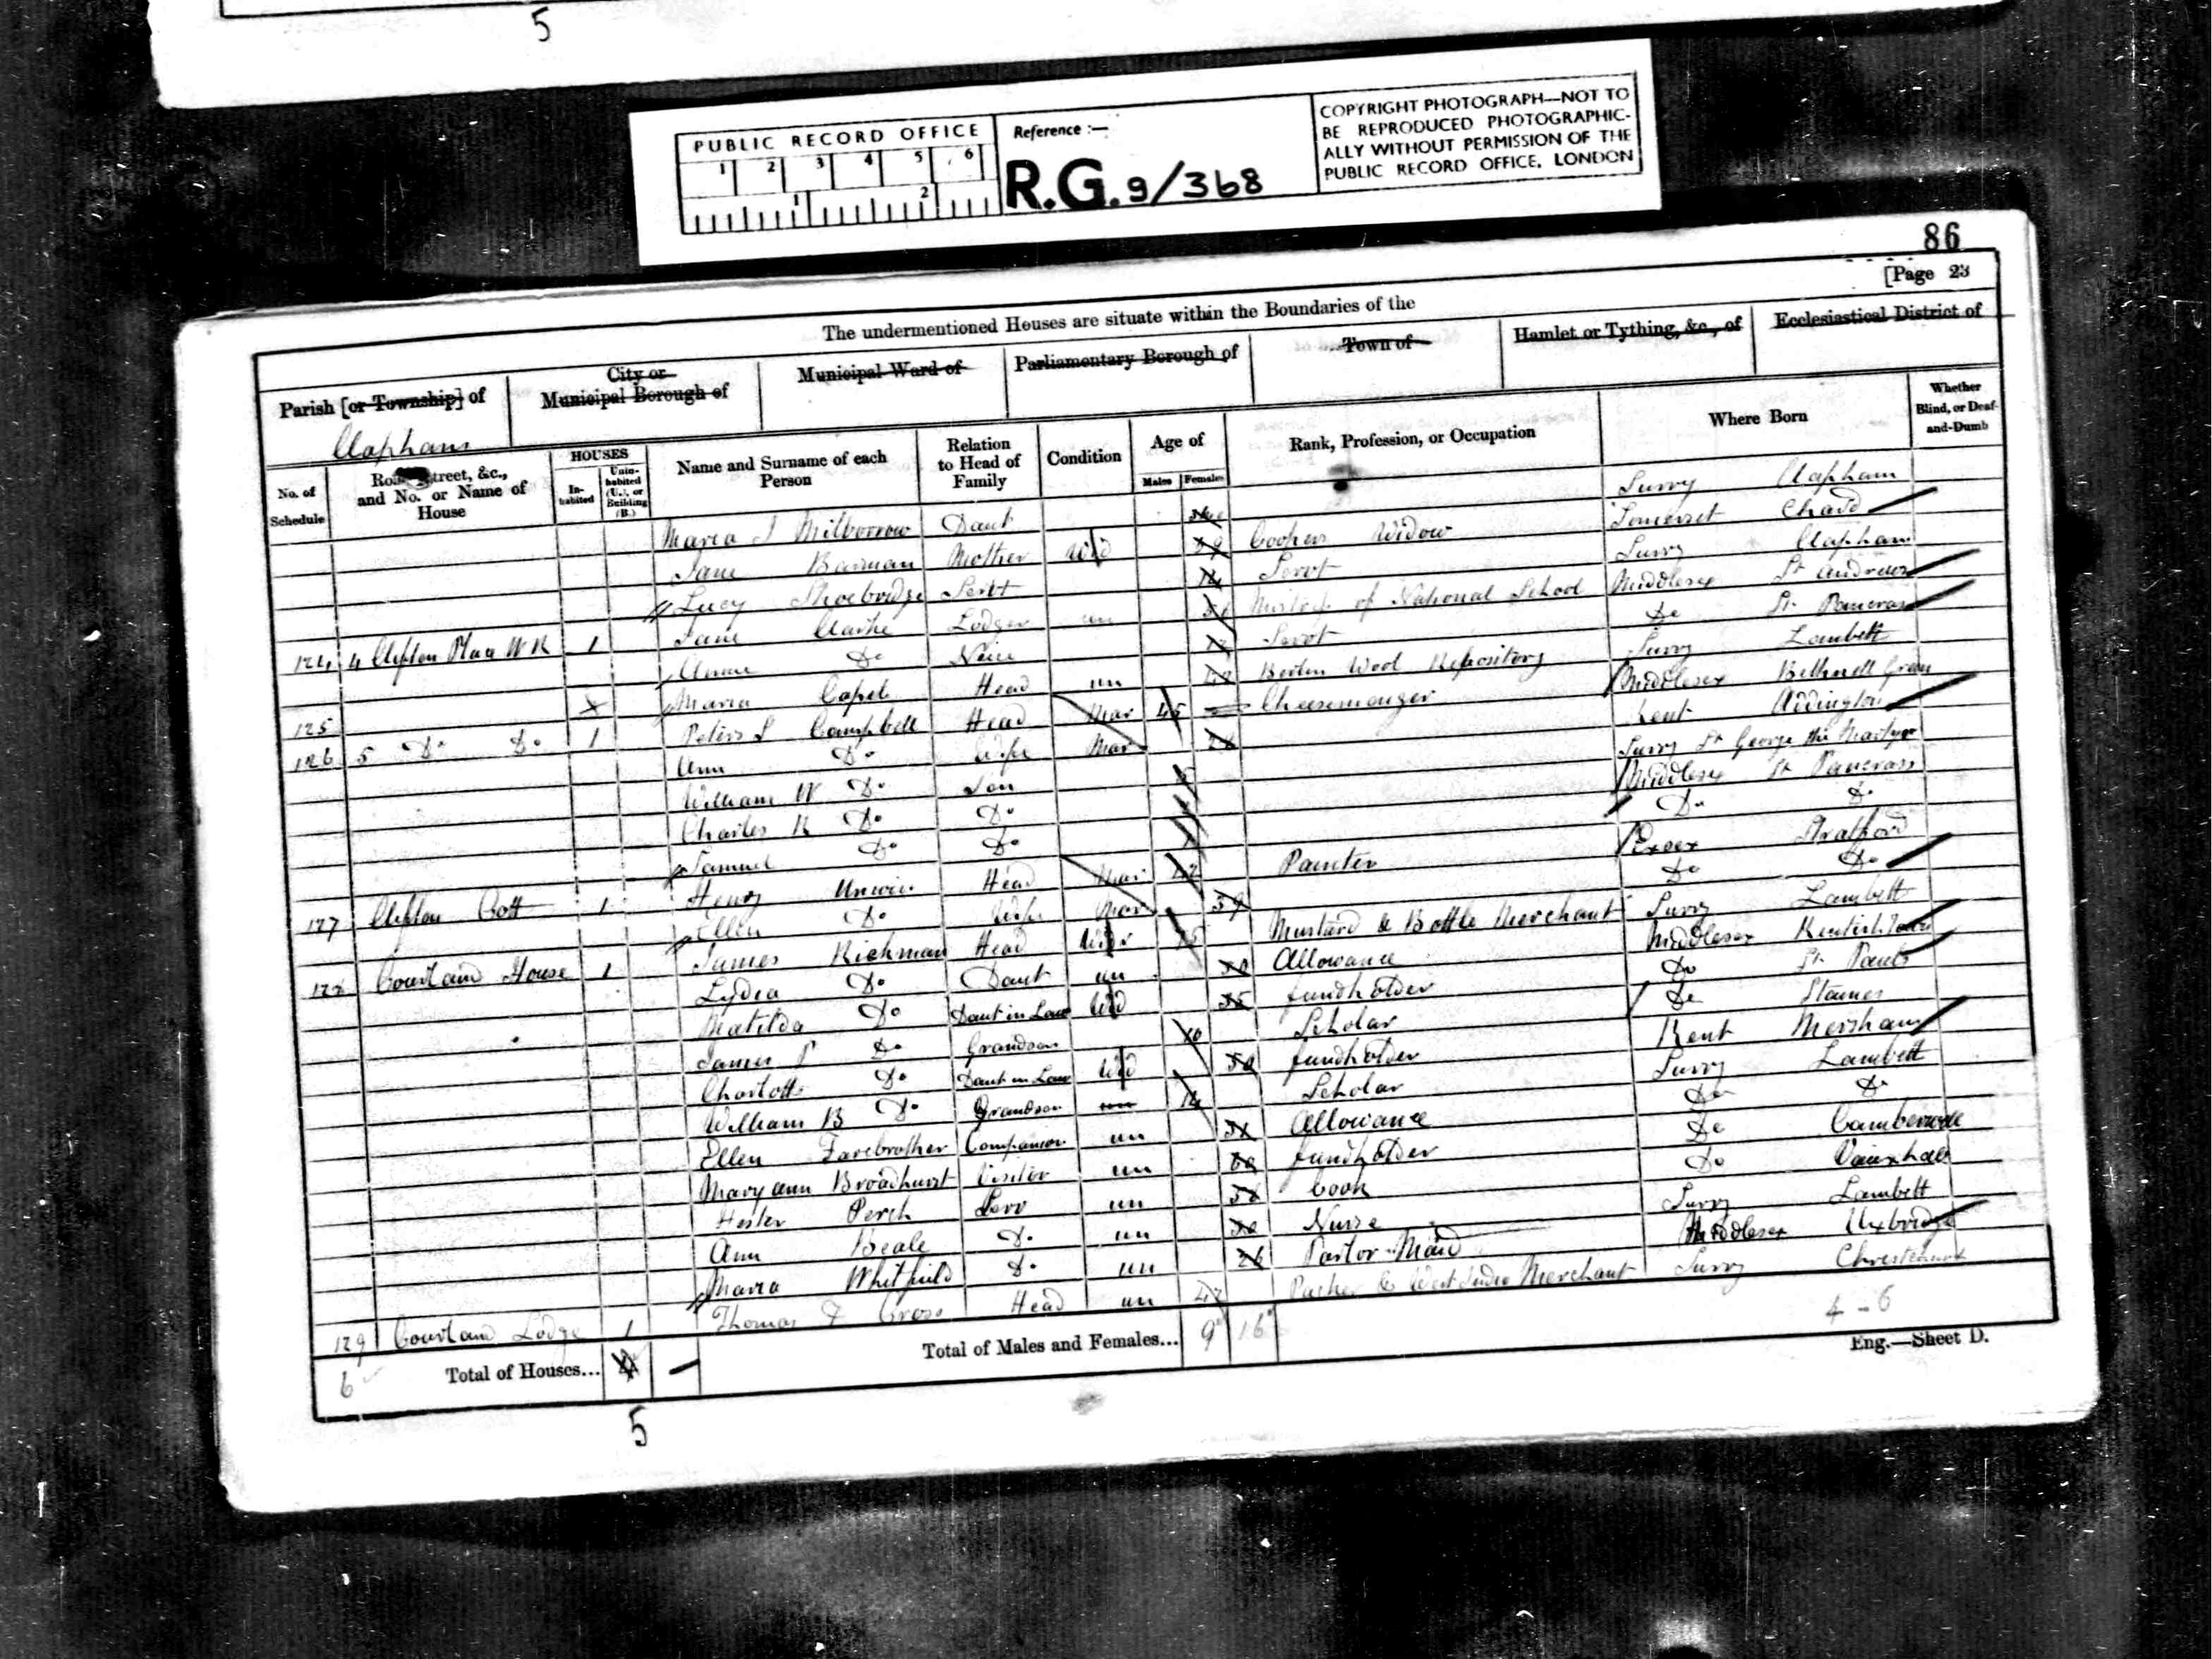 5
PUBLIC RECORD OFFICE
1 2 3 4 5 6
1 2
Reference :—
R.G. 9/368
COPYRIGHT PHOTOGRAPH—NOT TO
BE REPRODUCED PHOTOGRAPHIC-
ALLY WITHOUT PERMISSION OF THE
PUBLIC RECORD OFFICE, LONDON
86
[Page 23
The undermentioned Houses are situate within the Boundaries of the
Parish [or Township] of
City or Municipal Borough of
Municipal Ward of
Parliamentary Borough of
Town of
Hamlet or Tything, &c., of
Ecclesiastical District of
Clapham
No. of Schedule
Street, &c., and No. or Name of House
HOUSES
In-habited
Unin-habited (U.), or Building (B.)
Name and Surname of each Person
Relation to Head of Family
Condition
Age of
Males Females
Rank, Profession, or Occupation
Where Born
Whether Blind, or Deaf-and-Dumb
Maria J Milborrow Daut Surry Clapham
Jane Mother Wid 59 Coopers Widow Somerset Chard
Lucy Shoebridge Servt 14 Servt Surry Clapham
124 4 Clifton Place W R 1 Jane Clarke Lodger un of National School Middlesex St Andrews
Anne Do Neice Servt Do St Pancras
125 Maria Capel Head un Berlin Wool Repository Surry Lambeth
126 5 Do Do 1 Campbell Head Mar 45 Cheesemonger Middlesex Bethnell Green
Ann Do Wife Mar Kent Addington
William W Do Son Surry St George the Martyr
Charles R Do Do Middlesex St Pancrass
Samuel Do Do Do Do
127 Clifton Cott 1 Henry Unwin Head Mar Painter Essex Stratford
Ellen Do Wife Mar 39 Do Do
128 Courland House 1 James Richman Head Widr 75 Mustard & Bottle Merchant Surry Lambeth
Lydia Do Daut un Allowance Middlesex Kentish Town
Matilda Do Daut in Law Wid 35 fundholder Do St Pauls
James P Do Grandson 10 Scholar Do Staines
Charlotte Do Daut in Law Wid fundholder Kent Mersham
William B Do Grandson un 14 Scholar Surry Lambeth
Ellen Farebrother Companion un Allowance Do Do
Mary Ann Broadhurst Visitor un fundholder Do Camberwell
Hester Perch Serv un Cook Do Vauxhall
Ann Beale Do un Nurse Surry Lambeth
Maria Whitfield Do un 26 Parlor Maid Middlesex Uxbridge
129 Courland Lodge 1 Thomas F Cross Head un 42 & West India Merchant Surry Christchurch
6 Total of Houses... 4 —
Total of Males and Females... 9 16
4 - 6
Eng.—Sheet D.
5